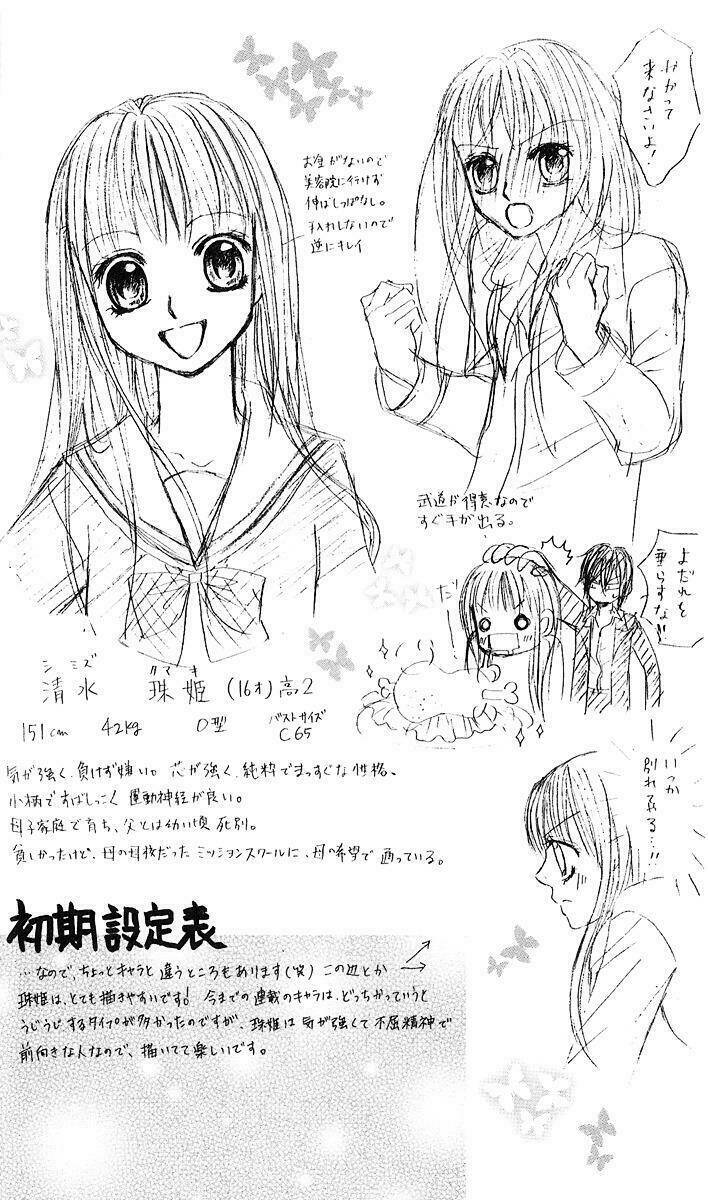 お金がないので
美容院に行けず
伸ばしっぱなし。
手入れしないので
逆にキレイ
かかって
来なさいよ!
武道が得意なので
すぐ手が出る。
だ
よだれを
垂らすな!!
シミズ タマキ
清水 珠姫 (16才) 高2
151cm 42kg O型 バストサイズ
C65
気が強く、負けず嫌い。芯が強く、純粋でまっすぐな性格、
小柄ですばしっこく 運動神経が良い。
母子家庭で育ち、父とは幼い頃 死別。
貧しかったけど、母の母校だった ミッションスクールに、母の希望で 通っている。
いつか
別れてやる…!!
初期設定表
…なので、ちょっとキャラと違うところもあります(笑) この辺とか
珠姫は、とても描きやすいです! 今までの連載のキャラは、どっちかっていうと
うじうじするタイプが多かったのですが、珠姫は気が強くて不屈精神で
前向きな人なので、描いてて楽しいです。